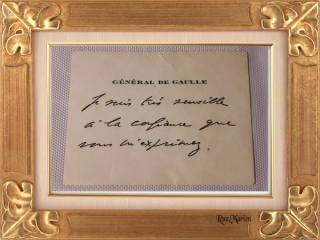 GÉNÉRAL DE GAULLE
Je suis très sensible
à la confiance que
vous m'exprimez.